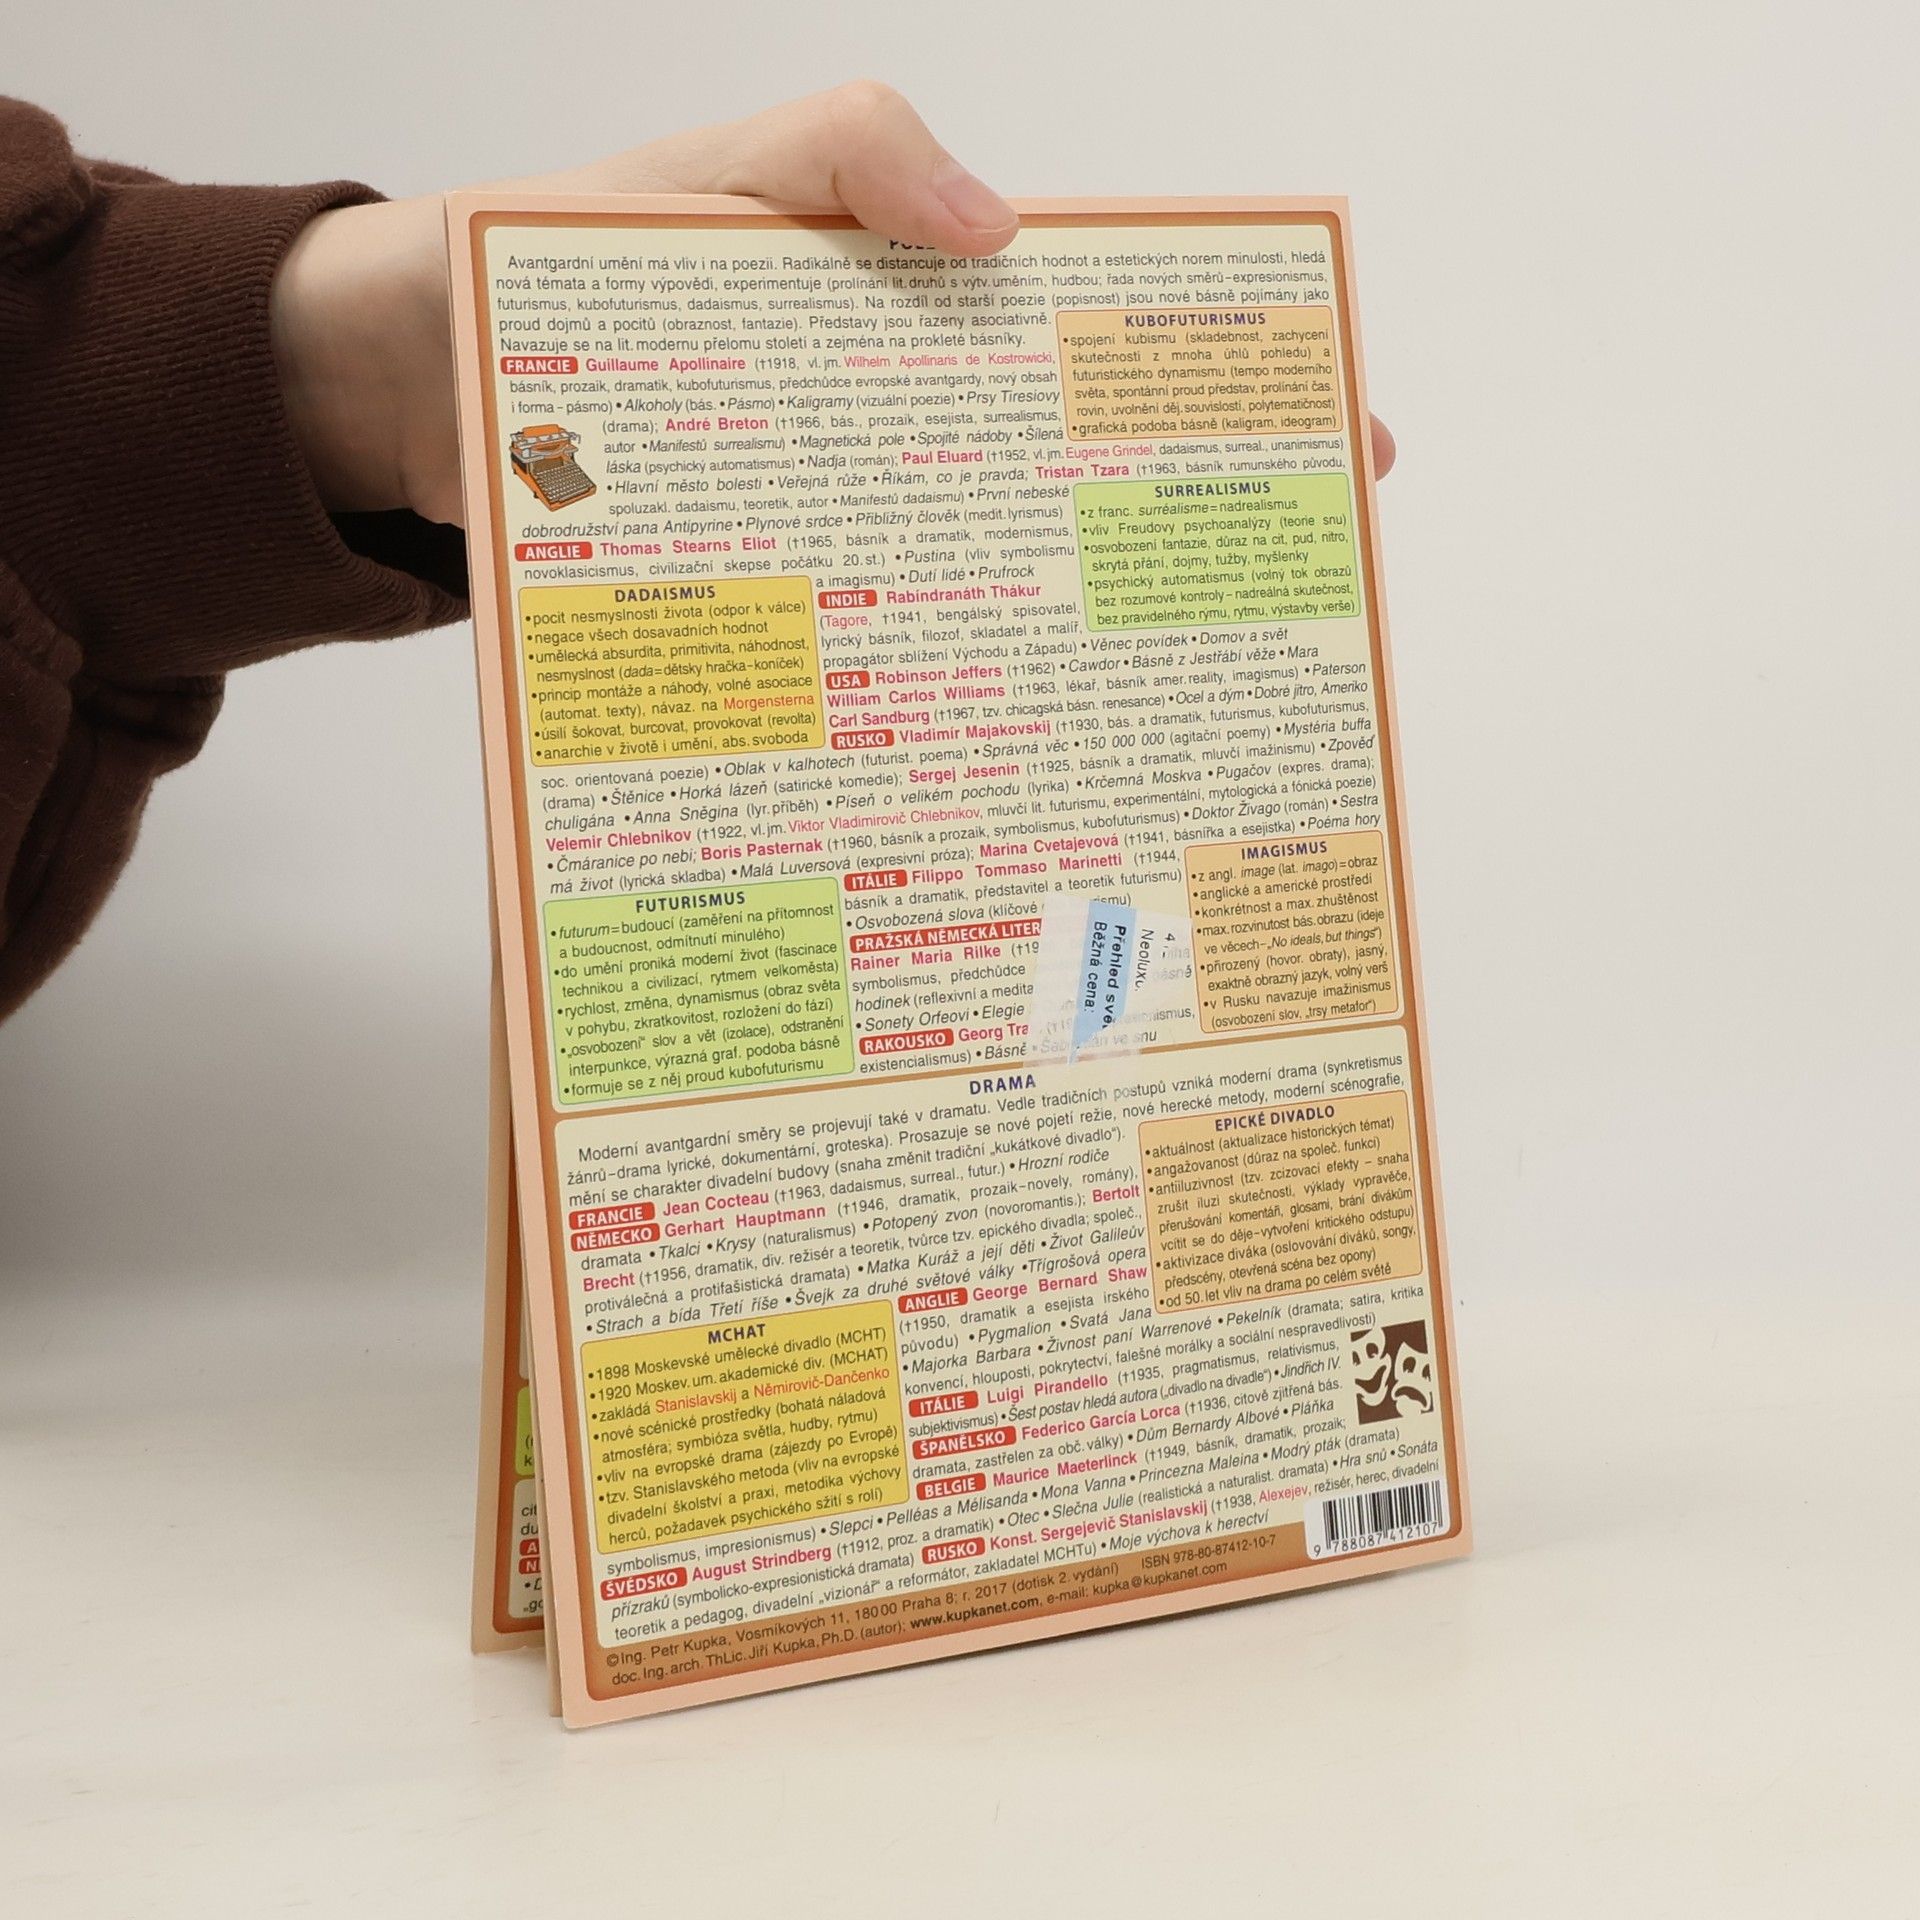 Avantgardní umění má vliv i na poezii. Radikálně se distancuje od tradičních hodnot a estetických norem minulosti, hledá
nová témata a formy výpovědi, experimentuje (prolínání lit. druhů s výtv. uměním, hudbou; řada nových směrů–expresionismus,
futurismus, kubofuturismus, dadaismus, surrealismus). Na rozdíl od starší poezie (popisnost) jsou nové básně pojímány jako
proud dojmů a pocitů (obraznost, fantazie). Představy jsou řazeny asociativně.
Navazuje se na lit. modernu přelomu století a zejména na prokleté básníky.
KUBOFUTURISMUS
•spojení kubismu (skladebnost, zachycení
skutečnosti z mnoha úhlů pohledu) a
futuristického dynamismu (tempo moderního
světa, spontánní proud představ, prolínání čas.
rovin, uvolnění děj. souvislostí, polytematičnost)
•grafická podoba básně (kaligram, ideogram)
FRANCIE Guillaume Apollinaire (†1918, vl. jm. Wilhelm Apollinaris de Kostrowicki,
básník, prozaik, dramatik, kubofuturismus, předchůdce evropské avantgardy, nový obsah
i forma – pásmo) • Alkoholy (bás. • Pásmo) • Kaligramy (vizuální poezie) • Prsy Tiresiovy
(drama); André Breton (†1966, bás., prozaik, esejista, surrealismus,
autor • Manifestů surrealismu) • Magnetická pole • Spojité nádoby • Šílená
láska (psychický automatismus) • Nadja (román); Paul Eluard (†1952, vl. jm. Eugene Grindel, dadaismus, surreal., unanimismus)
• Hlavní město bolesti • Veřejná růže • Říkám, co je pravda; Tristan Tzara (†1963, básník rumunského původu,
spoluzakl. dadaismu, teoretik, autor • Manifestů dadaismu) • První nebeské
dobrodružství pana Antipyrine • Plynové srdce • Přibližný člověk (medit. lyrismus)
SURREALISMUS
•z franc. surréalisme=nadrealismus
•vliv Freudovy psychoanalýzy (teorie snu)
•osvobození fantazie, důraz na cit, pud, nitro,
skrytá přání, dojmy, tužby, myšlenky
•psychický automatismus (volný tok obrazů
bez rozumové kontroly – nadreálná skutečnost,
bez pravidelného rýmu, rytmu, výstavby verše)
ANGLIE Thomas Stearns Eliot (†1965, básník a dramatik, modernismus,
novoklasicismus, civilizační skepse počátku 20.st.) • Pustina (vliv symbolismu
a imagismu) • Dutí lidé • Prufrock
DADAISMUS
•pocit nesmyslnosti života (odpor k válce)
•negace všech dosavadních hodnot
•umělecká absurdita, primitivita, náhodnost,
nesmyslnost (dada=dětsky hračka–koníček)
•princip montáže a náhody, volné asociace
(automat. texty), návaz. na Morgensterna
•úsilí šokovat, burcovat, provokovat (revolta)
•anarchie v životě i umění, abs. svoboda
INDIE Rabíndranáth Thákur
(Tagore, †1941, bengálský spisovatel,
lyrický básník, filozof, skladatel a malíř,
propagátor sblížení Východu a Západu) • Věnec povídek • Domov a svět
USA Robinson Jeffers (†1962) • Cawdor • Básně z Jestřábí věže • Mara
William Carlos Williams (†1963, lékař, básník amer. reality, imagismus) • Paterson
Carl Sandburg (†1967, tzv. chicagská básn. renesance) • Ocel a dým • Dobré jitro, Ameriko
RUSKO Vladimír Majakovskij (†1930, bás. a dramatik, futurismus, kubofuturismus,
soc. orientovaná poezie) • Oblak v kalhotech (futurist. poema) • Správná věc • 150 000 000 (agitační poemy) • Mystéria buffa
(drama) • Štěnice • Horká lázeň (satirické komedie); Sergej Jesenin (†1925, básník a dramatik, mluvčí imažinismu) • Zpověď
chuligána • Anna Sněgina (lyr. příběh) • Píseň o velikém pochodu (lyrika) • Krčemná Moskva • Pugačov (expres. drama);
Velemir Chlebnikov (†1922, vl. jm. Viktor Vladimirovič Chlebnikov, mluvčí lit. futurismu, experimentální, mytologická a fónická poezie)
• Čmáranice po nebi; Boris Pasternak (†1960, básník a prozaik, symbolismus, kubofuturismus) • Doktor Živago (román) • Sestra
má život (lyrická skladba) • Malá Luversová (expresivní próza); Marina Cvetajevová (†1941, básnířka a esejistka) • Poéma hory
FUTURISMUS
•futurum=budoucí (zaměření na přítomnost
a budoucnost, odmítnutí minulého)
•do umění proniká moderní život (fascinace
technikou a civilizací, rytmem velkoměsta)
•rychlost, změna, dynamismus (obraz světa
v pohybu, zkratkovitost, rozložení do fází)
•„osvobození" slov a vět (izolace), odstranění
interpunkce, výrazná graf. podoba básně
•formuje se z něj proud kubofuturismu
ITÁLIE Filippo Tommaso Marinetti (†1944,
básník a dramatik, představitel a teoretik futurismu)
• Osvobozená slova (klíčové
PRAŽSKÁ NĚMECKÁ LITER
Rainer Maria Rilke (†19
symbolismus, předchůdce
hodinek (reflexivní a medita
• Sonety Orfeovi • Elegie
RAKOUSKO Georg Tra
existencialismus) • Básně • Šebastián ve snu
Přehled svě
Běžná cena:
IMAGISMUS
•z angl. image (lat. imago)=obraz
•anglické a americké prostředí
•konkrétnost a max. zhuštěnost
•max. rozvinutost bás. obrazu (ideje
ve věcech–„No ideals, but things")
•přirozený (hovor. obraty), jasný,
exaktně obrazný jazyk, volný verš
•v Rusku navazuje imažinismus
(osvobození slov, „trsy metafor")
DRAMA
Moderní avantgardní směry se projevují také v dramatu. Vedle tradičních postupů vzniká moderní drama (synkretismus
žánrů–drama lyrické, dokumentární, groteska). Prosazuje se nové pojetí režie, nové herecké metody, moderní scénografie,
mění se charakter divadelní budovy (snaha změnit tradiční „kukátkové divadlo").
FRANCIE Jean Cocteau (†1963, dadaismus, surreal., futur.) • Hrozní rodiče
NĚMECKO Gerhart Hauptmann (†1946, dramatik, prozaik–novely, romány),
dramata • Tkalci • Krysy (naturalismus) • Potopený zvon (novoromantis.); Bertolt
Brecht (†1956, dramatik, div. režisér a teoretik, tvůrce tzv. epického divadla; společ.,
protiválečná a protifašistická dramata) • Matka Kuráž a její děti • Život Galileův
• Strach a bída Třetí říše • Švejk za druhé světové války • Třígrošová opera
EPICKÉ DIVADLO
•aktuálnost (aktualizace historických témat)
•angažovanost (důraz na společ. funkci)
•antiiluzivnost (tzv. zcizovací efekty – snaha
zrušit iluzi skutečnosti, výklady vypravěče,
přerušování komentáři, glosami, brání divákům
vcítit se do děje–vytvoření kritického odstupu)
•aktivizace diváka (oslovování diváků, songy,
předscény, otevřená scéna bez opony)
•od 50. let vliv na drama po celém světě
MCHAT
•1898 Moskevské umělecké divadlo (MCHT)
•1920 Moskev. um. akademické div. (MCHAT)
•zakládá Stanislavskij a Němirovič-Dančenko
•nové scénické prostředky (bohatá náladová
atmosféra; symbióza světla, hudby, rytmu)
•vliv na evropské drama (zájezdy po Evropě)
•tzv. Stanislavského metoda (vliv na evropské
divadelní školství a praxi, metodika výchovy
herců, požadavek psychického sžití s rolí)
ANGLIE George Bernard Shaw
(†1950, dramatik a esejista irského
původu) • Pygmalion • Svatá Jana
• Majorka Barbara • Živnost paní Warrenové • Pekelník (dramata; satira, kritika
konvencí, hlouposti, pokrytectví, falešné morálky a sociální nespravedlivosti)
ITÁLIE Luigi Pirandello (†1935, pragmatismus, relativismus,
subjektivismus) • Šest postav hledá autora („divadlo na divadle") • Jindřich IV.
ŠPANĚLSKO Federico García Lorca (†1936, citově zjitřená bás.
dramata, zastřelen za obč. války) • Dům Bernardy Albové • Pláňka
BELGIE Maurice Maeterlinck (†1949, básník, dramatik, prozaik;
symbolismus, impresionismus) • Slepci • Pelléas a Mélisanda • Mona Vanna • Princezna Maleina • Modrý pták (dramata)
ŠVÉDSKO August Strindberg (†1912, proz. a dramatik) • Otec • Slečna Julie (realistická a naturalist. dramata) • Hra snů • Sonáta
přízraků (symbolicko-expresionistická dramata) RUSKO Konst. Sergejevič Stanislavskij (†1938, Alexejev, režisér, herec, divadelní
teoretik a pedagog, divadelní „vizionář" a reformátor, zakladatel MCHTu) • Moje výchova k herectví
©Ing. Petr Kupka, Vosmíkových 11, 18000 Praha 8; r. 2017 (dotisk 2. vydání) ISBN 978-80-87412-10-7
doc. Ing. arch. ThLic. Jiří Kupka, Ph.D. (autor); www.kupkanet.com, e-mail: kupka@kupkanet.com
9 788087 412107